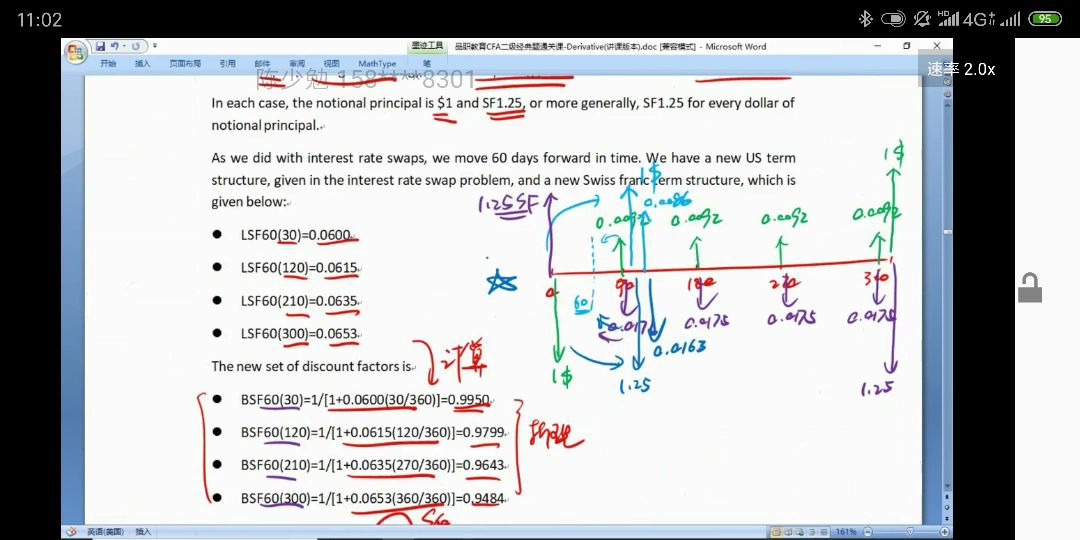 11:02
HD 4G 95
墨迹工具
品职教育CFA二级经典题通关课-Derivative(讲课版本).doc [兼容模式] - Microsoft Word
开始 插入 页面布局 引用 邮件 审阅 视图 MathType 笔
陈少勉 158****8301
速率 2.0x
In each case, the notional principal is $1 and SF1.25, or more generally, SF1.25 for every dollar of
notional principal.
As we did with interest rate swaps, we move 60 days forward in time. We have a new US term
structure, given in the interest rate swap problem, and a new Swiss franc term structure, which is
given below:
1$
1$
1.25SF
0.0096
0.0092 0.0092 0.0092 0.0092
● LSF60(30)=0.0600
● LSF60(120)=0.0615
● LSF60(210)=0.0635
● LSF60(300)=0.0653
0 60 90 180 270 360
0.0175 0.0175 0.0175
0.0163
1$ 1.25 1.25
The new set of discount factors is
计算
● BSF60(30)=1/[1+0.0600(30/360)]=0.9950
● BSF60(120)=1/[1+0.0615(120/360)]=0.9799
● BSF60(210)=1/[1+0.0635(270/360)]=0.9643
● BSF60(300)=1/[1+0.0653(360/360)]=0.9484
英语(美国) 插入 161%